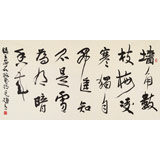 墙角數
枝梅凌
寒獨自
開遥知
不是雪
為有暗
香来